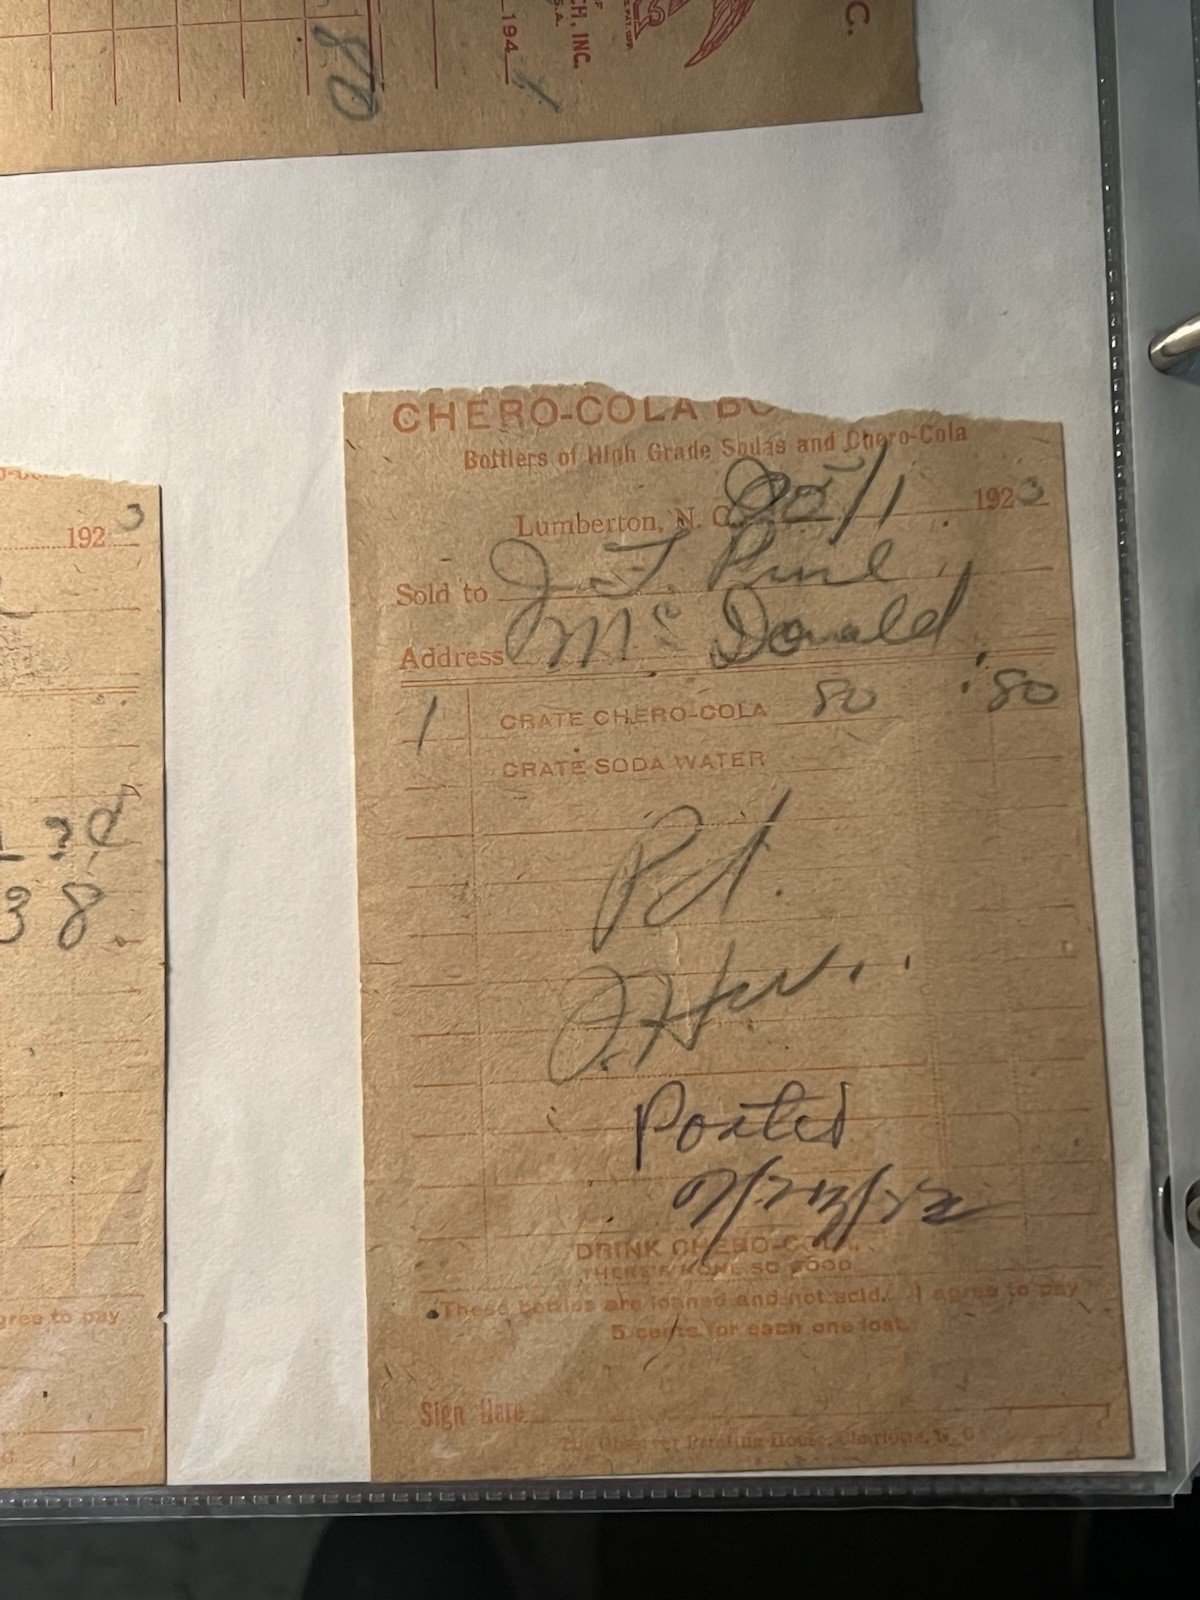 C.
CH, INC.
S.A.
194
80
CHERO-COLA BO
Bottlers of High Grade Sodas and Chero-Cola
Lumberton, N. C. 1923
Sold to J. T.
Address Mc Donald
1 CRATE CHERO-COLA 80 80
CRATE SODA WATER
Pd.
Posted
DRINK CHERO-COLA
THERE'S NONE SO GOOD
These bottles are loaned and not sold. I agree to pay
5 cents for each one lost.
Sign Here
The Observer Printing House, Charlotte, N. C.
1923
38
gree to pay